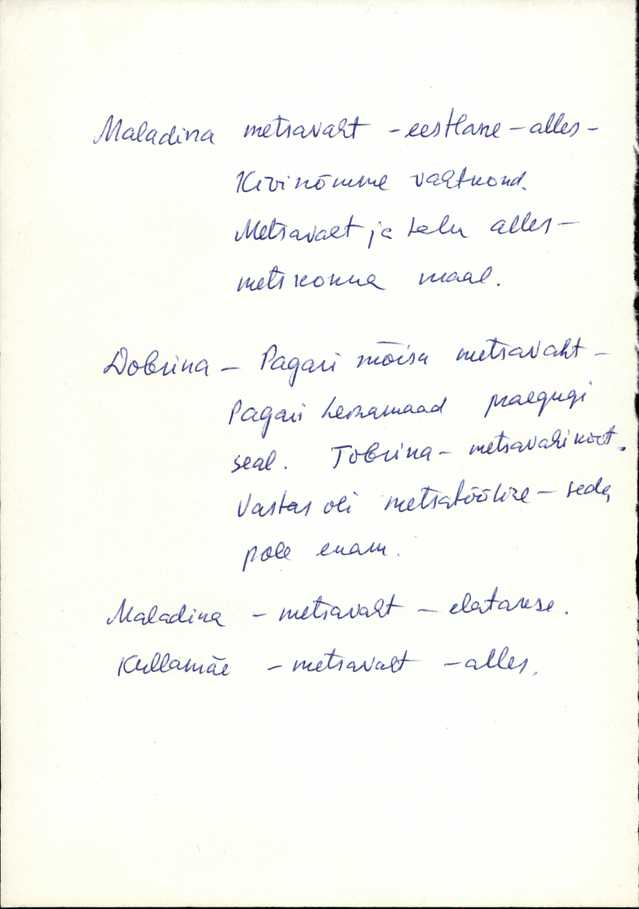 Maladina metsavaht – eestlane – alles –
Kivinõmme vahtkond.
Metsavaht ja talu alles –
metskonna maal.
Dobrina – Pagari mõisa metsavaht –
Pagari heinamaad praegugi
seal. Tobrina – metsavahikoht.
Vastas oli metsatööline – seda
pole enam.
Maladina – metsavaht –
Kullamäe – metsavaht – alles.